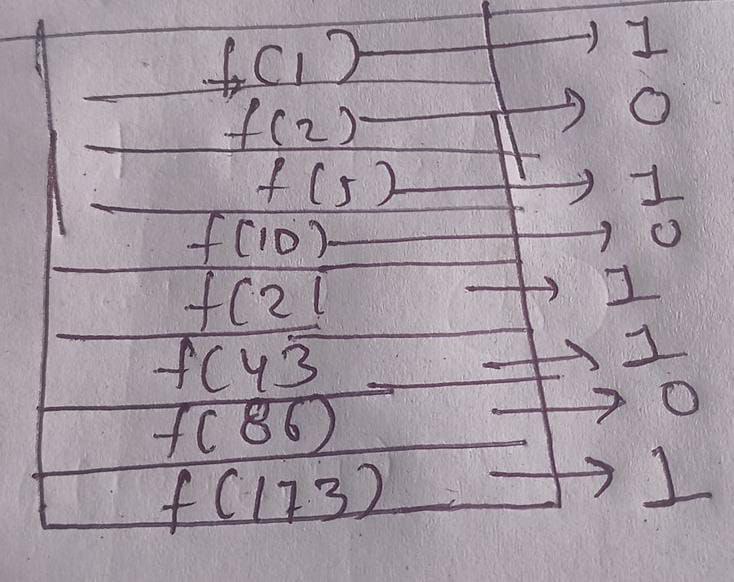 f(1) → 1
f(2) → 0
f(5) → 1
f(10) → 0
f(21 → 1
f(43 → 1
f(86) → 0
f(173) → 1